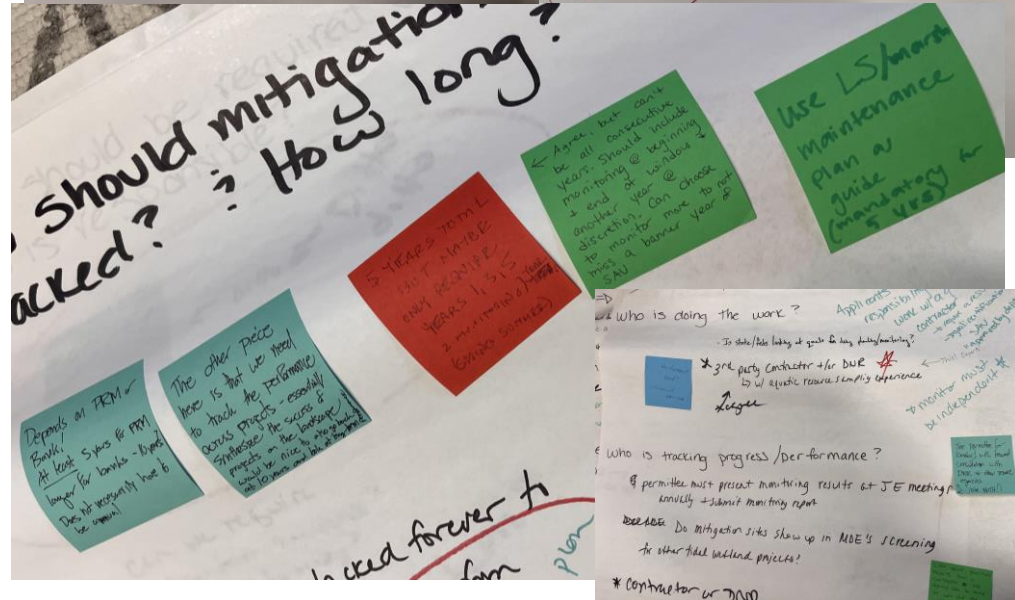 should mitigation
acked? ? How long?
Depends on PRM or
Bank!
At least 5 years for PRM
longer for banks - 10 years
Does not necessarily have to
be annual
The other piece
here is that we need
to track the performance
across projects - essentially
synthesize the success of
projects on the landscape. It
would be nice to also go back
at 10 years and look at
5 YEARS TOTAL
BUT MAYBE
ONLY REQUIRE
YEARS 1, 3, 5
2 monitoring/year
← Agree, but can't
be all consecutive
years. Should include
monitoring @ beginning
+ end of window +
another year @
discretion. Can choose
to monitor more to not
miss a banner year of
SAV
use LS/marsh
maintenance
plan as
guide
(mandatory for
5 yrs)
acked forever to
plan
Who is doing the work?
Applicants
responsibility
work w/ a
contractor
* 3rd party contractor +/or DNR
↳ w/ aquatic resource sampling experience
→ monitor must
be independent *
who is tracking progress/performance?
permittee must present monitoring results at JE meeting
annually + submit monitoring report
Do mitigation sites show up in MDE's screening
for other tidal wetland projects?
* contractor or DNR